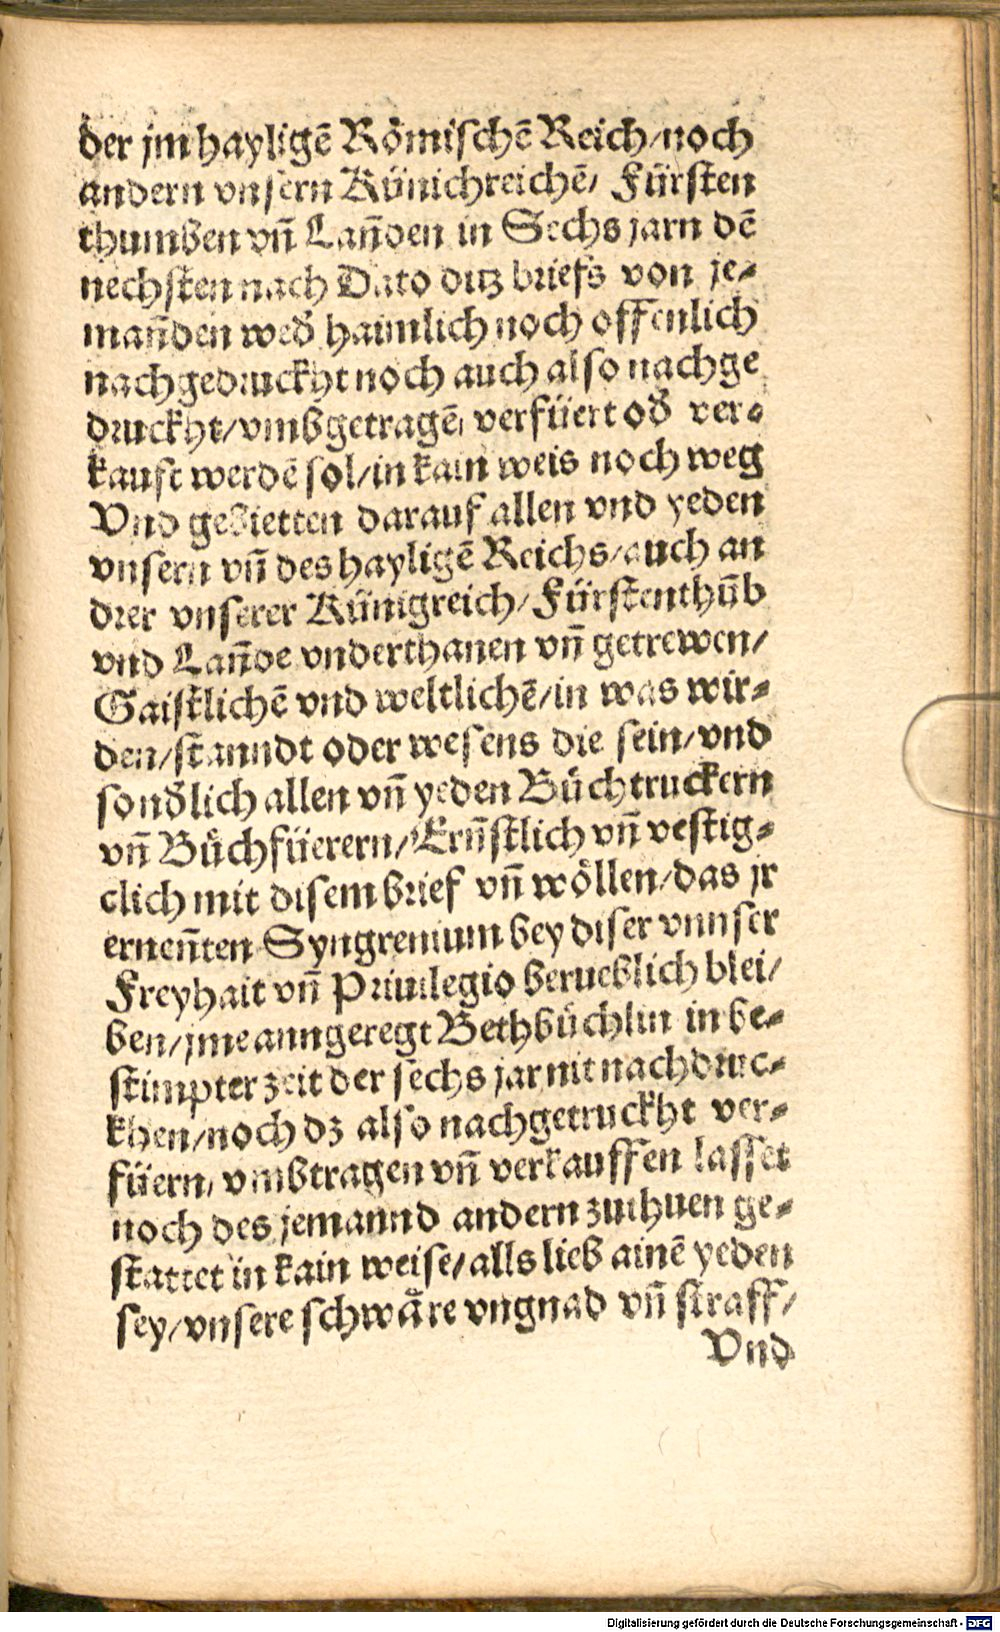 der jm hayligē Römischē Reich/noch
andern vnsern Künichreichē/ Fürsten
thumben vñ Lañden in Sechs jarn dē
nechsten nach Dato ditz briefs von je⸗
mañden wed̃ haimlich noch offenlich
nachgedruckht noch auch also nachge
druckht/vmbgetragē/ verfüert od̃ ver⸗
kauft werdē sol/in kain weis noch weg
Vnd gebietten darauf allen vnd yeden
vnsern vñ des hayligē Reichs/auch an
drer vnserer Künigreich/Fürstenthūb
vnd Lañde vnderthanen vñ getrewen/
Gaistlichē vnd weltlichē/in was wir⸗
den/stanndt oder wesens die sein/vnd
sond̃lich allen vñ yeden Bůchtruckern
vñ Bůchfüerern/Erñstlich vñ vestig⸗
clich mit disem brief vñ wöllen/das jr
erneñten Syngrenium bey diser vnnser
Freyhait vñ Priuilegio berueblich blei/
ben/jme anngeregt Bethbüchlin in be⸗
stimpter zeit der sechs jar nit nachdruc⸗
khen/noch dz also nachgetruckht ver⸗
füern/ vmbtragen vñ verkauffen lasset
noch des jemannd andern zuthuen ge⸗
stattet in kain weise/alls lieb ainē yeden
sey/vnsere schwåre vngnad vñ straff/
Vnd
Digitalisierung gefördert durch die Deutsche Forschungsgemeinschaft - DFG